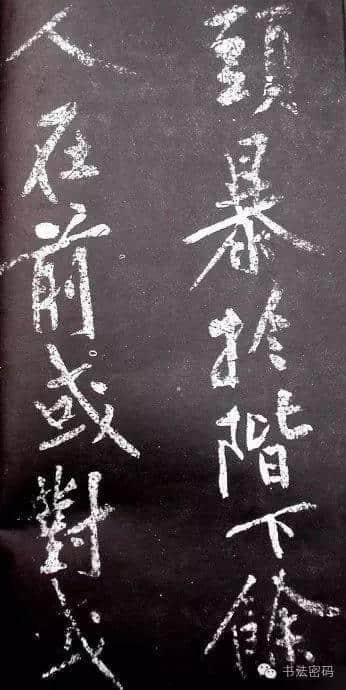 頭暴於階下餘
人在前或對或
书法密码